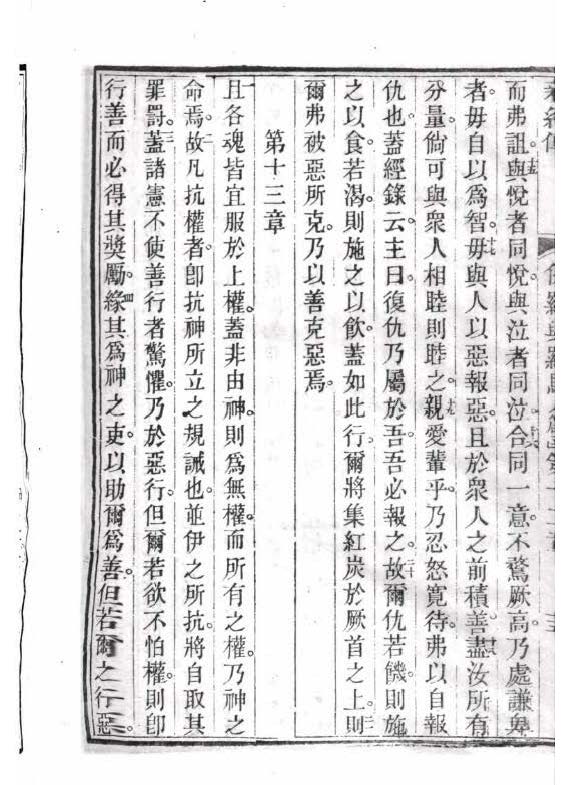 而弗詛與悅者同悅與泣者同泣合同一意不驚厥高乃處謙卑
者毋自以為智毋與人以惡報惡且於眾人之前積善盡汝所有
分量倘可與眾人相睦則睦之親愛輩乎乃忍怒寬待弗以自報
仇也蓋經錄云主曰復仇乃屬於吾吾必報之故爾仇若饑則施
之以食若渴則施之以飲蓋如此行爾將集紅炭於厥首之上則
爾弗被惡所克乃以善克惡焉
第十三章
且各魂皆宜服於上權蓋非由神則為無權而所有之權乃神之
命焉故凡抗權者卽抗神所立之規誡也並伊之所抗將自取其
罪罰蓋諸憲不使善行者驚懼乃於惡行但爾若欲不怕權則卽
行善而必得其獎勵緣其為神之吏以助爾為善但若爾之行惡